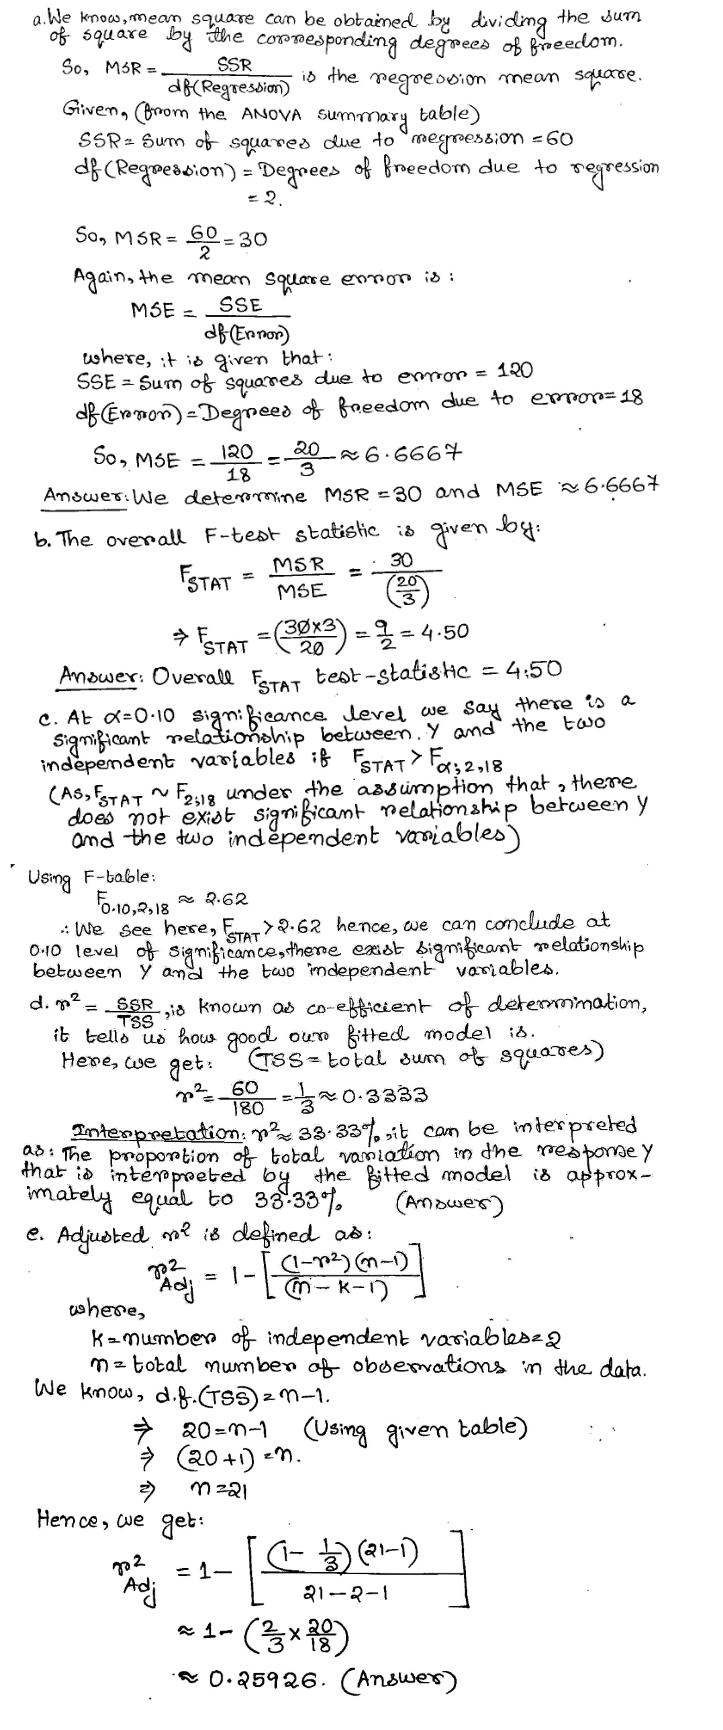 a. We know, mean square can be obtained by dividing the sum
of square by the corresponding degrees of freedom.
So, MSR = SSR / df(Regression) is the regression mean square.
Given, (from the ANOVA summary table)
SSR = Sum of squares due to regression = 60
df(Regression) = Degrees of freedom due to regression
= 2.
So, MSR = 60/2 = 30
Again, the mean square error is :
MSE = SSE / df(Error)
where, it is given that :
SSE = Sum of squares due to error = 120
df(Error) = Degrees of freedom due to error = 18
So, MSE = 120/18 = 20/3 ≈ 6.6667
Answer: We determine MSR = 30 and MSE ≈ 6.6667
b. The overall F-test statistic is given by:
F_STAT = MSR/MSE = 30/(20/3)
⇒ F_STAT = (30×3/20) = 9/2 = 4.50
Answer: Overall F_STAT test-statistic = 4.50
c. At α=0.10 significance level we say there is a
significant relationship between Y and the two
independent variables if F_STAT > F_α;2,18
(As, F_STAT ~ F_2,18 under the assumption that, there
does not exist significant relationship between Y
and the two independent variables)
Using F-table:
F_0.10,2,18 ≈ 2.62
∴ We see here, F_STAT > 2.62 hence, we can conclude at
0.10 level of significance, there exist significant relationship
between Y and the two independent variables.
d. r² = SSR/TSS, is known as co-efficient of determination,
it tells us how good our fitted model is.
Here, we get: (TSS = total sum of squares)
r² = 60/180 = 1/3 ≈ 0.3333
Interpretation: r² ≈ 33.33%, it can be interpreted
as: The proportion of total variation in the response Y
that is interpreted by the fitted model is approx-
imately equal to 33.33% (Answer)
e. Adjusted r² is defined as:
r²_Adj = 1-[(1-r²)(n-1)/(n-k-1)]
where,
k = number of independent variables = 2
n = total number of observations in the data.
We know, d.f.(TSS) = n-1.
⇒ 20 = n-1 (Using given table)
⇒ (20+1) = n.
⇒ n = 21
Hence, we get:
r²_Adj = 1-[(1-1/3)(21-1)/(21-2-1)]
≈ 1-(2/3 × 20/18)
≈ 0.25926. (Answer)